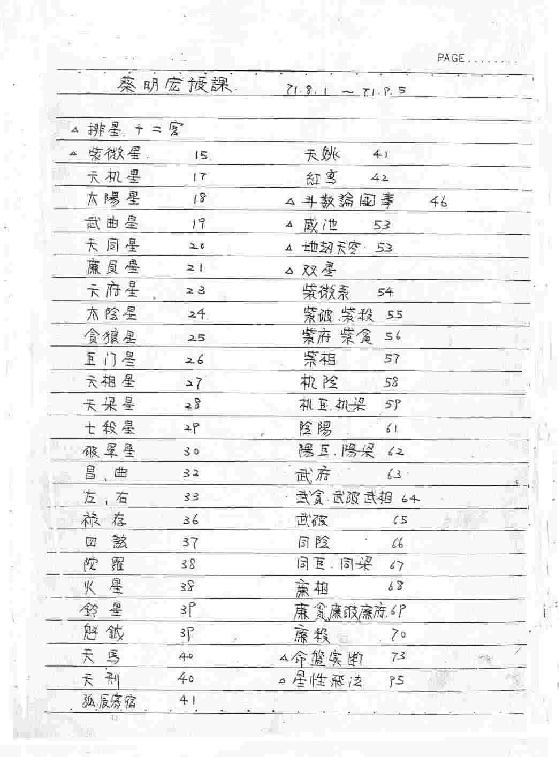 PAGE........
蔡明宏授課 71.8.1 ～ 71.9.5
△ 排星.十二宮
△ 紫微星 15
天机星 17
太陽星 18
武曲星 19
天同星 20
廉貞星 21
天府星 23
太陰星 24
貪狼星 25
巨门星 26
天相星 27
天梁星 28
七殺星 29
破軍星 30
昌.曲 32
左.右 33
祿存 36
四煞 37
陀羅 38
火星 38
鈴星 39
魁鉞 39
天馬 40
天刑 40
孤辰寡宿 41
天姚 41
紅鸾 42
△ 斗数論國事 46
△ 咸池 53
△ 地劫天空 53
△ 双星
紫微系 54
紫破.紫殺 55
紫府 紫貪 56
紫相 57
机陰 58
机巨.机梁 59
陰陽 61
陽巨.陽梁 62
武府 63
武貪.武破武相 64
武破 65
同陰 66
同巨.同梁 67
廉相 68
廉貪廉破廉府 69
廉殺 70
△ 命盤实断 73
△ 星性秘法 95